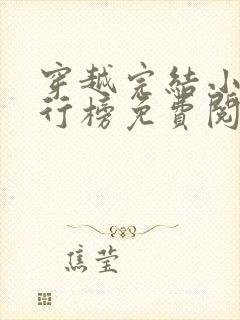 穿越完結小
行榜免費閱
焦莹